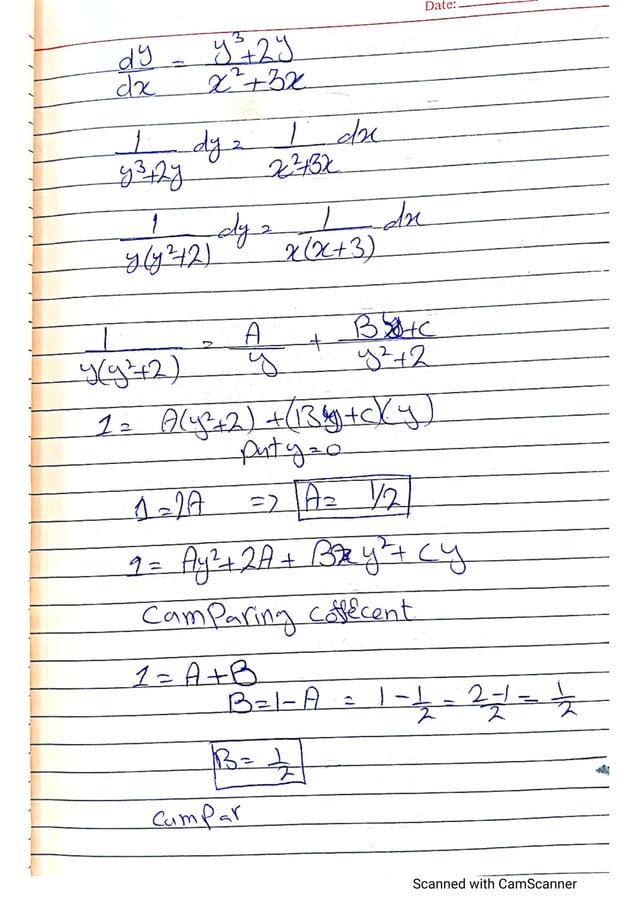 Date:
dy/dx = y³+2y / x²+3x
1/y³+2y dy = 1/x²+3x dx
1/y(y²+2) dy = 1/x(x+3) dx
1/y(y²+2) = A/y + By+c/y²+2
1 = A(y²+2) + (By+c)(y)
put y=0
1=2A => A= 1/2
1= Ay²+2A+ By²+cy
Camparing coffecent
1=A+B
B=1-A = 1-1/2 = 2-1/2 = 1/2
B= 1/2
Cumpar
Scanned with CamScanner